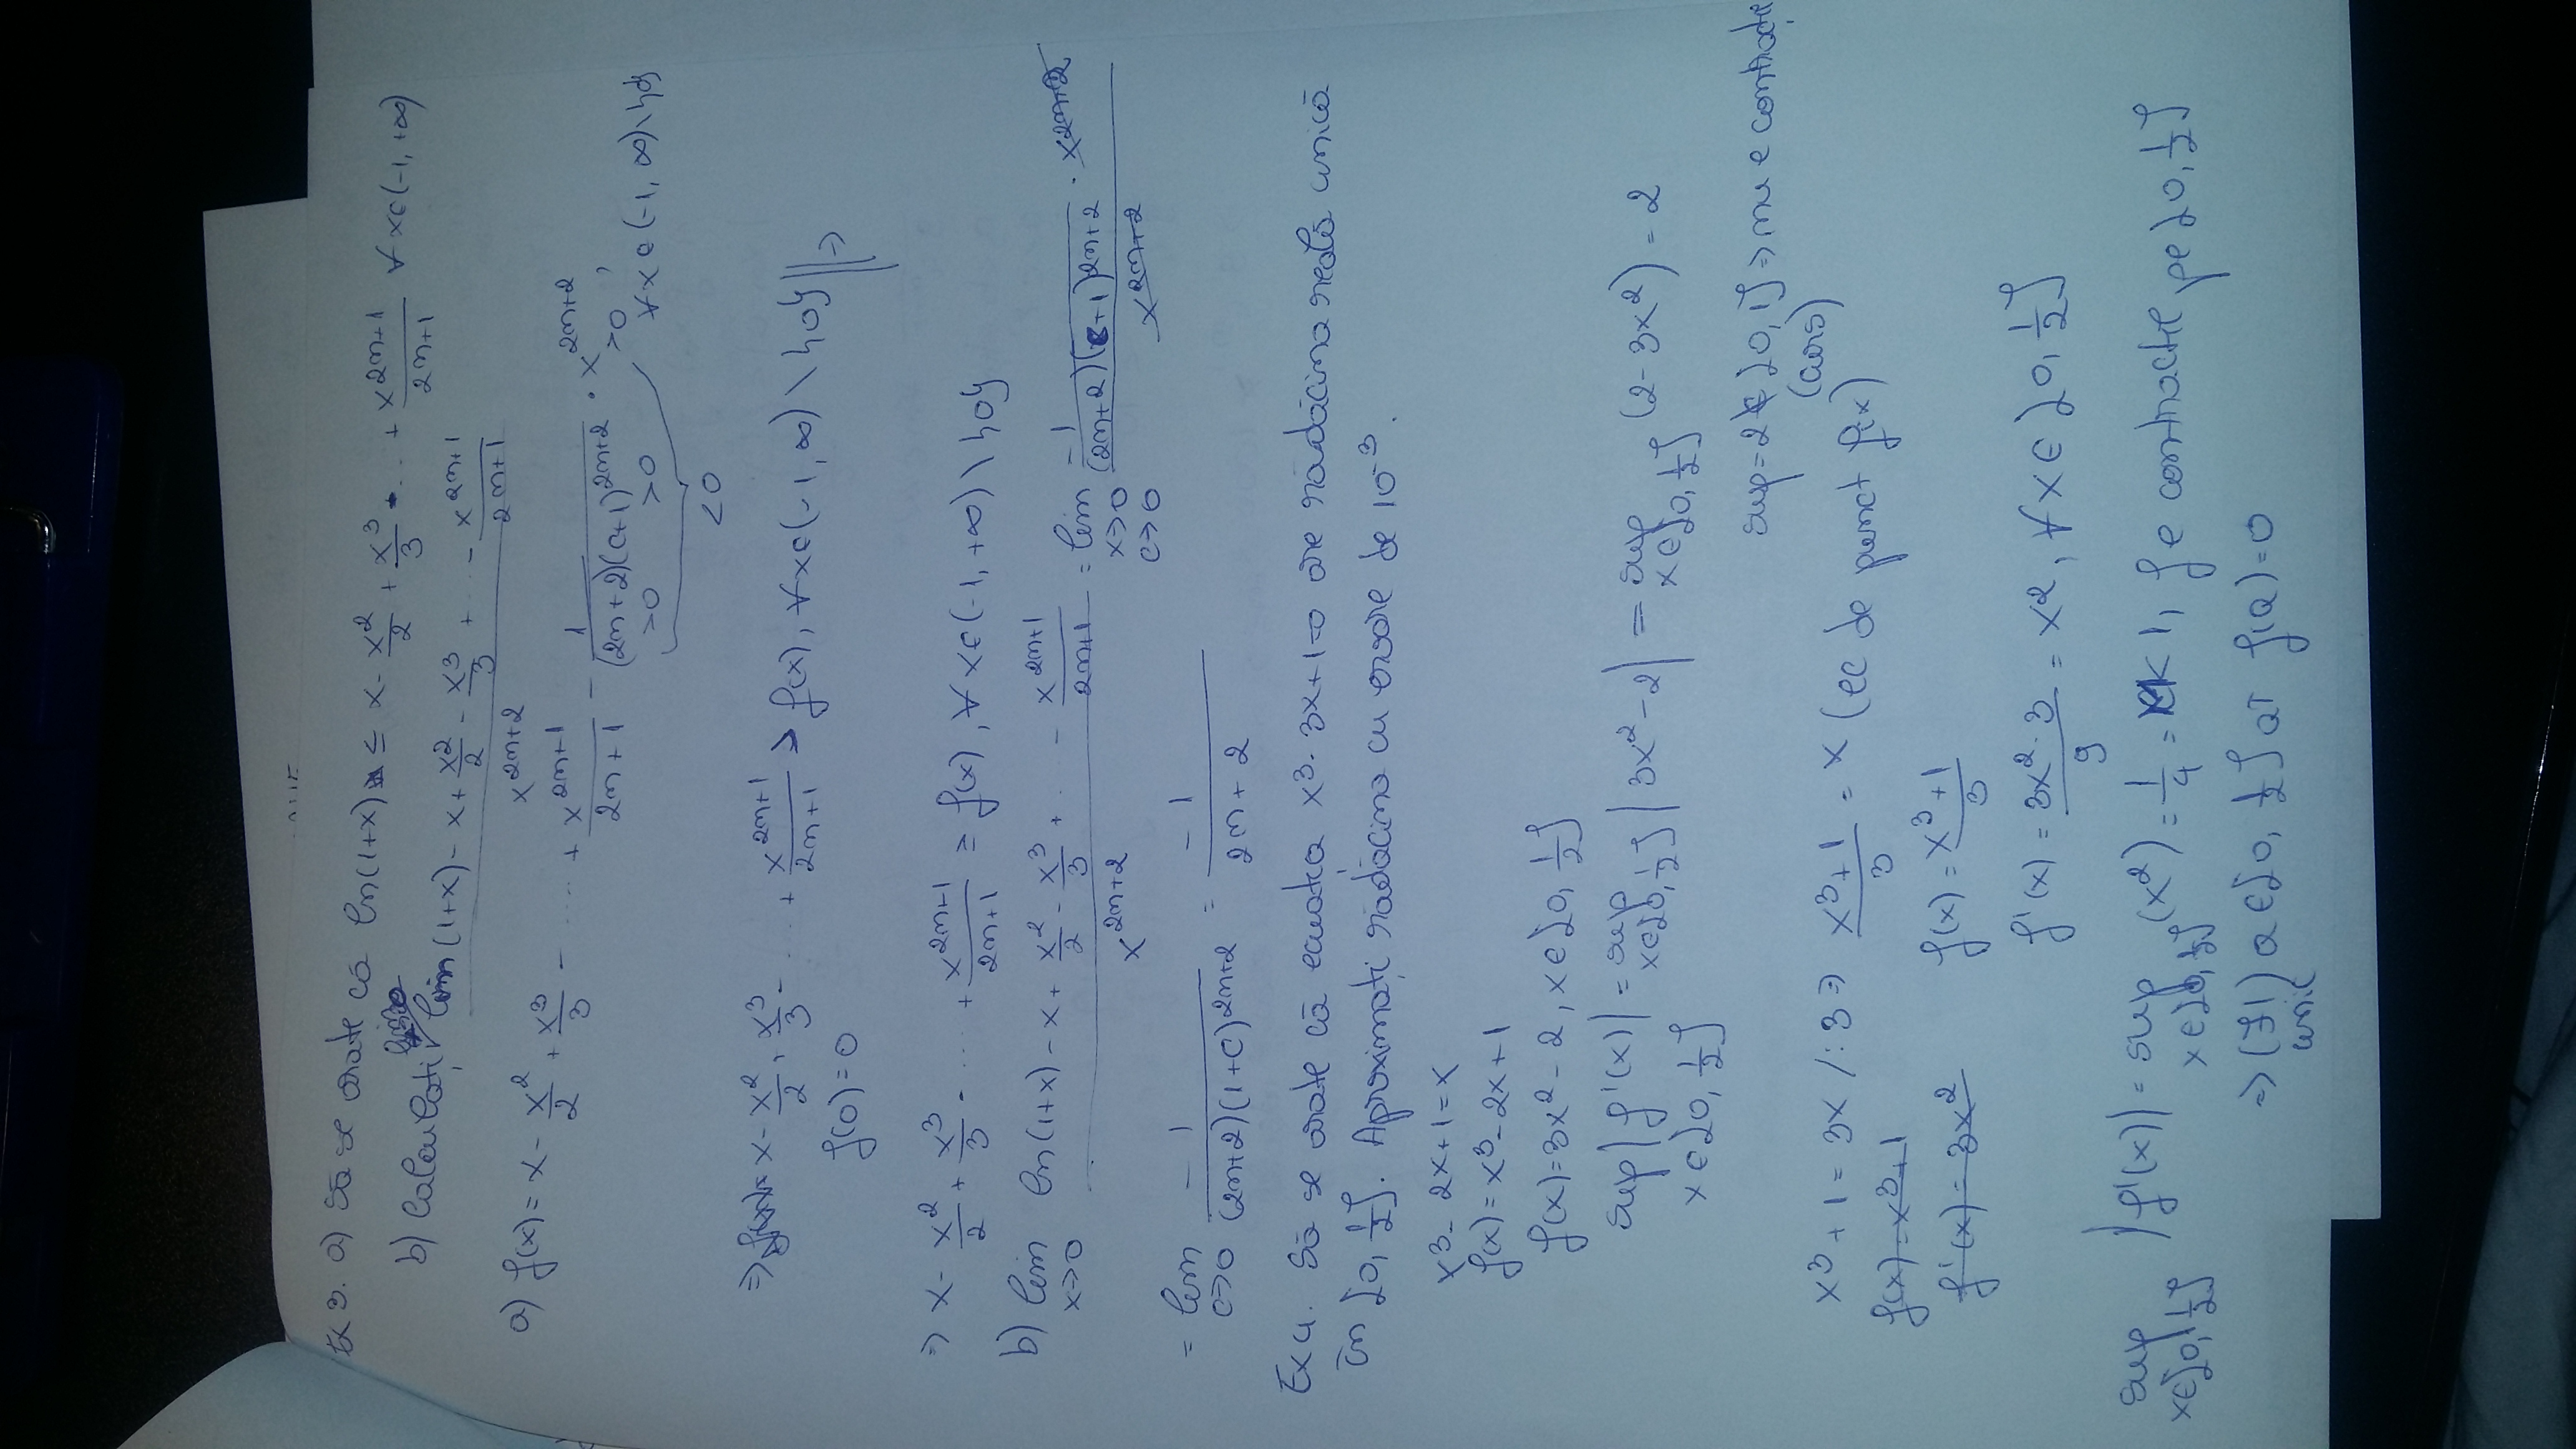 Ex 3. a) Să se arate că ln(1+x) ≤ x - x²/2 + x³/3 - ... + x^(2n+1)/(2n+1) ∀ x∈(-1,+∞)
b) Calculați lim (1+x) - x + x²/2 - x³/3 + ... - x^(2n+1)/(2n+1)
x^(2n+2)
a) f(x) = x - x²/2 + x³/3 - ... + x^(2n+1)/(2n+1) - 1/((2n+2)(c+1)^(2n+2)) · x^(2n+2)
>0 >0 >0 , ∀ x∈(-1,∞)\{0}
<0
=> x - x²/2 + x³/3 - ... + x^(2n+1)/(2n+1) > f(x), ∀x∈(-1,∞)\{0} =>
f(0)=0
=> x - x²/2 + x³/3 - ... + x^(2n+1)/(2n+1) ≥ f(x), ∀ x∈(-1,+∞)\{0}
b) lim x→0 (ln(1+x) - x + x²/2 - x³/3 + ... - x^(2n+1)/(2n+1)) / x^(2n+2) = lim x→0 c→0 (-1/((2n+2)(c+1)^(2n+2)) · x^(2n+2)) / x^(2n+2)
= lim c→0 -1/((2n+2)(1+c)^(2n+2)) = -1/(2n+2)
Ex 4. Să se arate că ecuatia x³-3x+1=0 are rădăcina reală unică
în [0,1/2]. Aproximați rădăcina cu eroare de 10^-3.
x³-2x+1=x
f(x)=x³-2x+1
f(x)=3x²-2, x∈[0,1/2]
sup x∈[0,1/2] |f'(x)| = sup x∈[0,1/2] |3x²-2| = sup x∈[0,1/2] (2-3x²) = 2
sup=2 ∉ [0,1] => nu e contracție
(curs)
x³+1=3x /:3 => (x³+1)/3 = x (ec de punct fix)
f(x)=x³+1 f(x) = (x³+1)/3
f'(x)=3x² f'(x) = (3x²·3)/9 = x², ∀x∈[0,1/2]
sup x∈[0,1/2] |f'(x)| = sup x∈[0,1/2] (x²) = 1/4 < 1, f e contracție pe [0,1/2]
=> (∃!) a∈[0,1/2] aî f(a)=0
unic